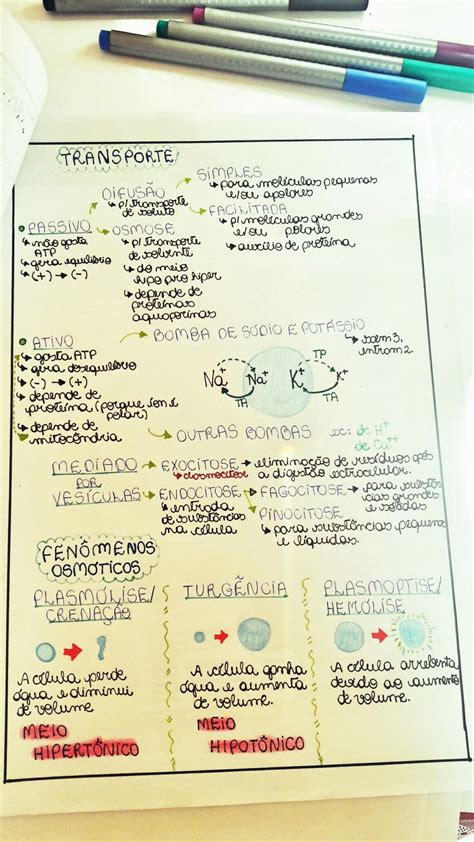 TRANSPORTE
SIMPLES
↳ para moléculas pequenas
e/ou apolares
DIFUSÃO
↳ p/ transporte
de soluto
FACILITADA
↳ p/ moléculas grandes
e/ou polares
↳ auxílio de proteína
PASSIVO
↳ não gasta
ATP
↳ gera equilíbrio
↳ (+) → (-)
OSMOSE
↳ p/ transporte
de solvente
↳ do meio
hipo pro hiper
↳ depende de
proteínas
aquaporinas
ATIVO
↳ gasta ATP
↳ gera desequilíbrio
↳ (-) → (+)
↳ depende de
proteína (porque íon é
polar)
↳ depende de
mitocôndria
BOMBA DE SÓDIO E POTÁSSIO
↳ saem 3,
entram 2.
TP
Na+ Na+ K+ K+
TA TA
OUTRAS BOMBAS ex: de H+
de Ca++
MEDIADO
POR
VESÍCULAS
EXOCITOSE → eliminação de resíduos após
↳ clasmocitose a digestão extracelular.
ENDOCITOSE
↳ entrada
de substâncias
na célula
FAGOCITOSE → para substân
cias grandes
e sólidas
PINOCITOSE
↳ para substâncias pequenas
e líquidas.
FENÔMENOS
OSMÓTICOS
PLASMÓLISE/
CRENAÇÃO
A célula perde
água e diminui
de volume.
MEIO
HIPERTÔNICO
TURGÊNCIA
A célula ganha
água e aumenta
de volume.
MEIO
HIPOTÔNICO
PLASMOPTISE/
HEMÓLISE
A célula arrebenta
devido ao aumento
de volume.